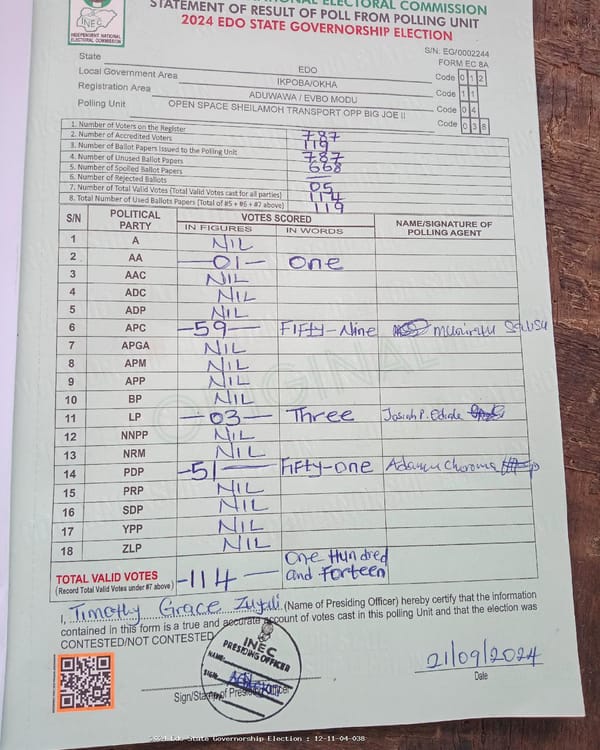 INEC
INDEPENDENT NATIONAL ELECTORAL COMMISSION
NATIONAL ELECTORAL COMMISSION
STATEMENT OF RESULT OF POLL FROM POLLING UNIT
2024 EDO STATE GOVERNORSHIP ELECTION
S/N: EG/0002244
FORM EC 8A
State EDO Code 0 1 2
Local Government Area IKPOBA/OKHA Code 1 1
Registration Area ADUWAWA / EVBO MODU Code 0 4
Polling Unit OPEN SPACE SHEILAMOH TRANSPORT OPP BIG JOE II Code 0 3 8
1. Number of Voters on the Register 787
2. Number of Accredited Voters 119
3. Number of Ballot Papers Issued to the Polling Unit 787
4. Number of Unused Ballot Papers 668
5. Number of Spoiled Ballot Papers —
6. Number of Rejected Ballots 05
7. Number of Total Valid Votes (Total Valid Votes cast for all parties) 114
8. Total Number of Used Ballots Papers (Total of #5 + #6 + #7 above) 119
S/N POLITICAL PARTY VOTES SCORED NAME/SIGNATURE OF POLLING AGENT
IN FIGURES IN WORDS
1 A NIL
2 AA —01— One
3 AAC NIL
4 ADC NIL
5 ADP NIL
6 APC —59— FIFTY-Nine Muniratu
7 APGA NIL
8 APM NIL
9 APP NIL
10 BP NIL
11 LP —03— Three Josiah P.
12 NNPP NIL
13 NRM NIL
14 PDP —51— FIFTY-One
15 PRP NIL
16 SDP NIL
17 YPP NIL
18 ZLP NIL
TOTAL VALID VOTES —114— One Hundred and Forteen
(Record Total Valid Votes under #7 above)
ORIGINAL
I, Timothy Grace (Name of Presiding Officer) hereby certify that the information
contained in this form is a true and accurate account of votes cast in this polling Unit and that the election was
CONTESTED/NOT CONTESTED
INEC
PRESIDING OFFICER
NAME:
SIGN:
Sign/Stamp of Presiding Officer
21/09/2024
Date
2024 Edo State Governorship Election : 12-11-04-038